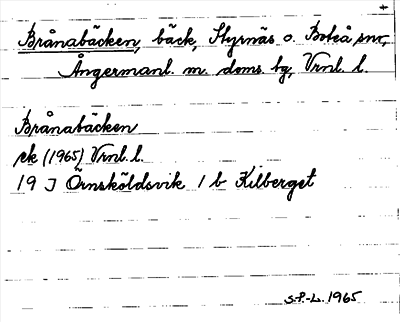 +
Brånabäcken, bäck, Styrnäs o. Boteå snr,
Ångermanl. m. doms. bg, Vrnl. l.
Brånabäcken
ek (1965) Vrnl. l.
19 J Örnsköldsvik 1 b Kilberget
S-P-L. 1965